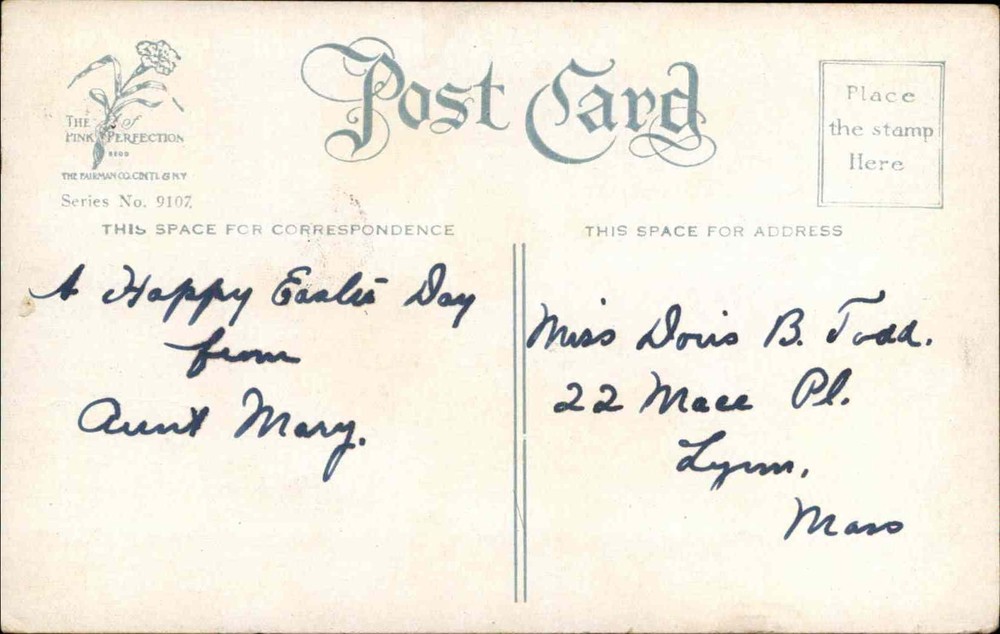 Post Card
THE of
PINK PERFECTION
THE FAIRMAN CO. CINTI. & NY
Series No. 9107
Place
the stamp
Here
THIS SPACE FOR CORRESPONDENCE
A Happy Easter Day
from
Aunt Mary.
THIS SPACE FOR ADDRESS
Miss Doris B. Todd.
22 Mace Pl.
Lynn,
Mass